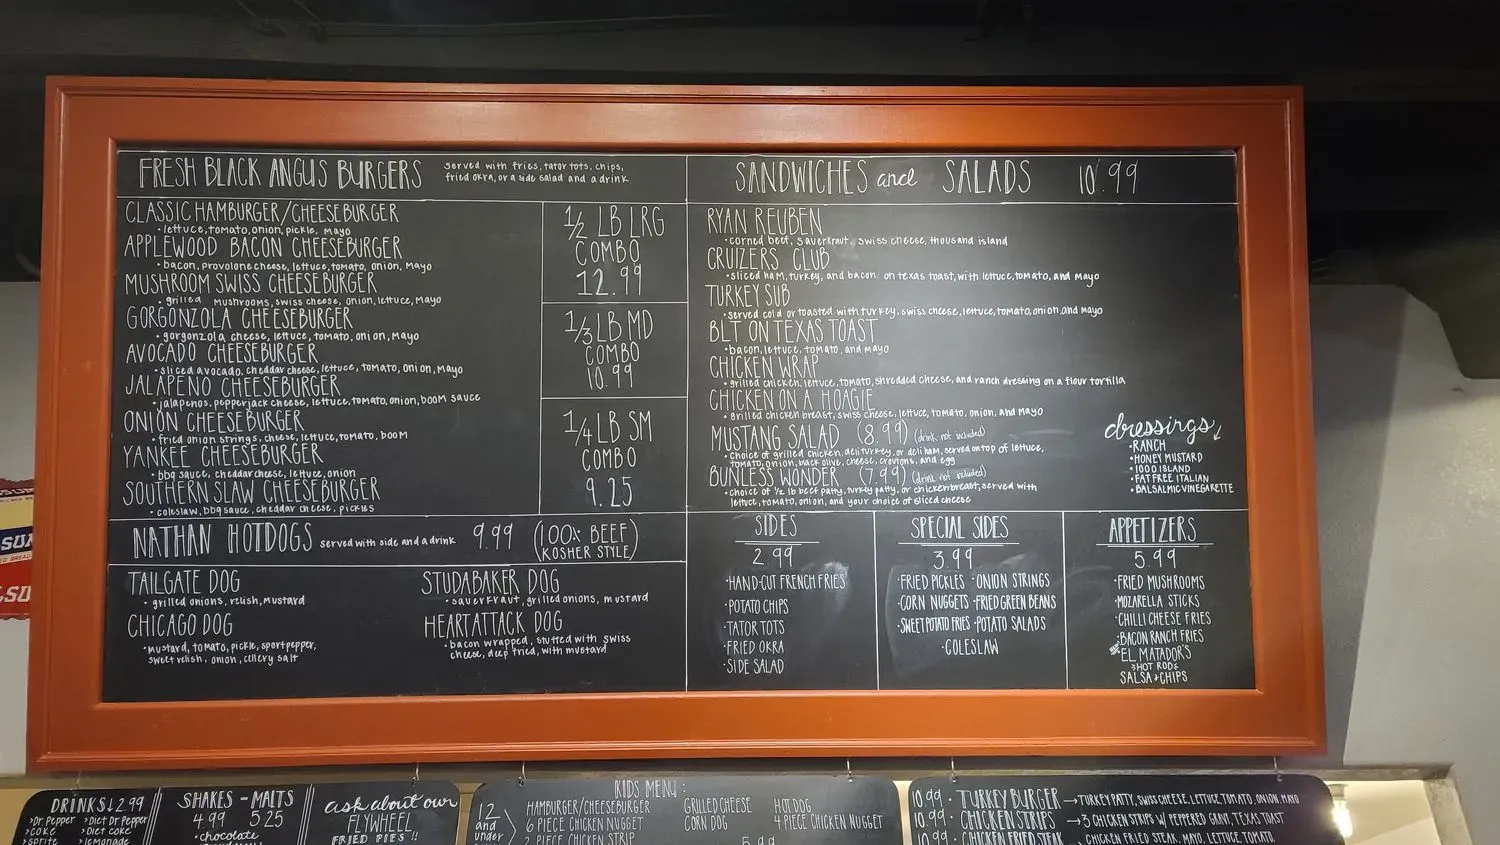 FRESH BLACK ANGUS BURGERS
served with fries, tator tots, chips,
fried okra, or a side salad and a drink
CLASSIC HAMBURGER/CHEESEBURGER
• lettuce, tomato, onion, pickle, mayo
APPLEWOOD BACON CHEESEBURGER
• bacon, provolone cheese, lettuce, tomato, onion, mayo
MUSHROOM SWISS CHEESEBURGER
• grilled mushrooms, swiss cheese, onion, lettuce, mayo
GORGONZOLA CHEESEBURGER
• gorgonzola cheese, lettuce, tomato, onion, mayo
AVOCADO CHEESEBURGER
• sliced avocado, cheddar cheese, lettuce, tomato, onion, mayo
JALAPENO CHEESEBURGER
• jalapenos, pepperjack cheese, lettuce, tomato, onion, boom sauce
ONION CHEESEBURGER
• fried onion strings, cheese, lettuce, tomato, boom
YANKEE CHEESEBURGER
• bbq sauce, cheddar cheese, lettuce, onion
SOUTHERN SLAW CHEESEBURGER
• coleslaw, bbq sauce, cheddar cheese, pickles
1/2 LB LRG
COMBO
12.99
1/3 LB MD
COMBO
10.99
1/4 LB SM
COMBO
9.25
NATHAN HOTDOGS served with side and a drink 9.99 (100% BEEF
KOSHER STYLE)
TAILGATE DOG
• grilled onions, relish, mustard
CHICAGO DOG
• mustard, tomato, pickle, sport pepper,
sweet relish, onion, cellery salt
STUDABAKER DOG
• sauerkraut, grilled onions, mustard
HEARTATTACK DOG
• bacon wrapped, stuffed with swiss
cheese, deep fried, with mustard
SANDWICHES and SALADS 10.99
RYAN REUBEN
• corned beef, sauerkraut, swiss cheese, thousand island
CRUIZERS CLUB
• sliced ham, turkey, and bacon on texas toast, with lettuce, tomato, and mayo
TURKEY SUB
• served cold or toasted with turkey, swiss cheese, lettuce, tomato, onion, and mayo
BLT ON TEXAS TOAST
• bacon, lettuce, tomato, and mayo
CHICKEN WRAP
• grilled chicken, lettuce, tomato, shredded cheese, and ranch dressing on a flour tortilla
CHICKEN ON A HOAGIE
• grilled chicken breast, swiss cheese, lettuce, tomato, onion, and mayo
MUSTANG SALAD (8.99) (drink not included)
• choice of grilled chicken, deli turkey, or deli ham, served on top of lettuce,
tomato, onion, black olive, cheese, croutons, and egg
BUNLESS WONDER (7.99) (drink not included)
• choice of 1/2 lb beef patty, turkey patty, or chicken breast, served with
lettuce, tomato, onion, and your choice of sliced cheese
dressings
• RANCH
• HONEY MUSTARD
• 1000 ISLAND
• FAT FREE ITALIAN
• BALSALMIC VINEGARETTE
SIDES
2.99
• HAND-CUT FRENCH FRIES
• POTATO CHIPS
• TATOR TOTS
• FRIED OKRA
• SIDE SALAD
SPECIAL SIDES
3.99
• FRIED PICKLES • ONION STRINGS
• CORN NUGGETS • FRIED GREEN BEANS
• SWEET POTATO FRIES • POTATO SALADS
• COLESLAW
APPETIZERS
5.99
• FRIED MUSHROOMS
• MOZARELLA STICKS
• CHILLI CHEESE FRIES
• BACON RANCH FRIES
• EL MATADOR'S
HOT RODS
SALSA + CHIPS
DRINKS 2.99
> Dr Pepper > Diet Dr Pepper
> COKE > Diet coke
> sprite > lemonade
SHAKES - MALTS
4.99 5.25
• chocolate
ask about our
FLYWHEEL
FRIED PIES!!
KIDS MENU:
12
and
under
HAMBURGER/CHEESEBURGER GRILLED CHEESE HOT DOG
6 PIECE CHICKEN NUGGET CORN DOG 4 PIECE CHICKEN NUGGET
2 PIECE CHICKEN STRIP 5.99
10.99 • TURKEY BURGER → TURKEY PATTY, SWISS CHEESE, LETTUCE, TOMATO, ONION, MAYO
10.99 • CHICKEN STRIPS → 3 CHICKEN STRIPS W/ PEPPERED GRAVY, TEXAS TOAST
10.99 • CHICKEN FRIED STEAK → CHICKEN FRIED STEAK, MAYO, LETTUCE, TOMATO